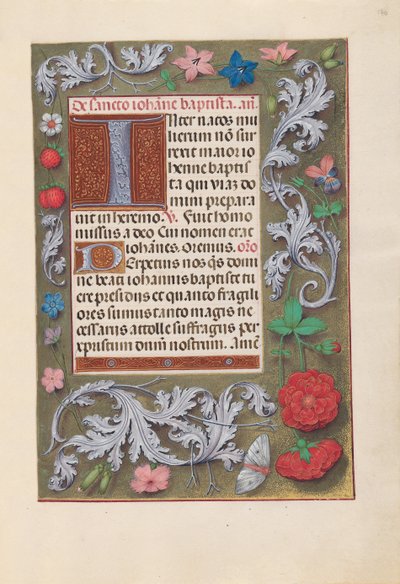 De sancto iohāne baptista. añ.
Inter natos mu
lierum nō sur
rexit maior io
henne baptis
ta qui viaz do
mini prepara
uit in heremo. V. Fuit homo
missus a deo Cui nomen erat
iohānes. Oremus. oro
Perpetuis nos qs domi
ne beati iohannis baptiste tu
ere presidiis et quanto fragili
ores sumus tanto magis ne
cessariis attolle suffragiis per
xpristum dñm nostrum. Amē